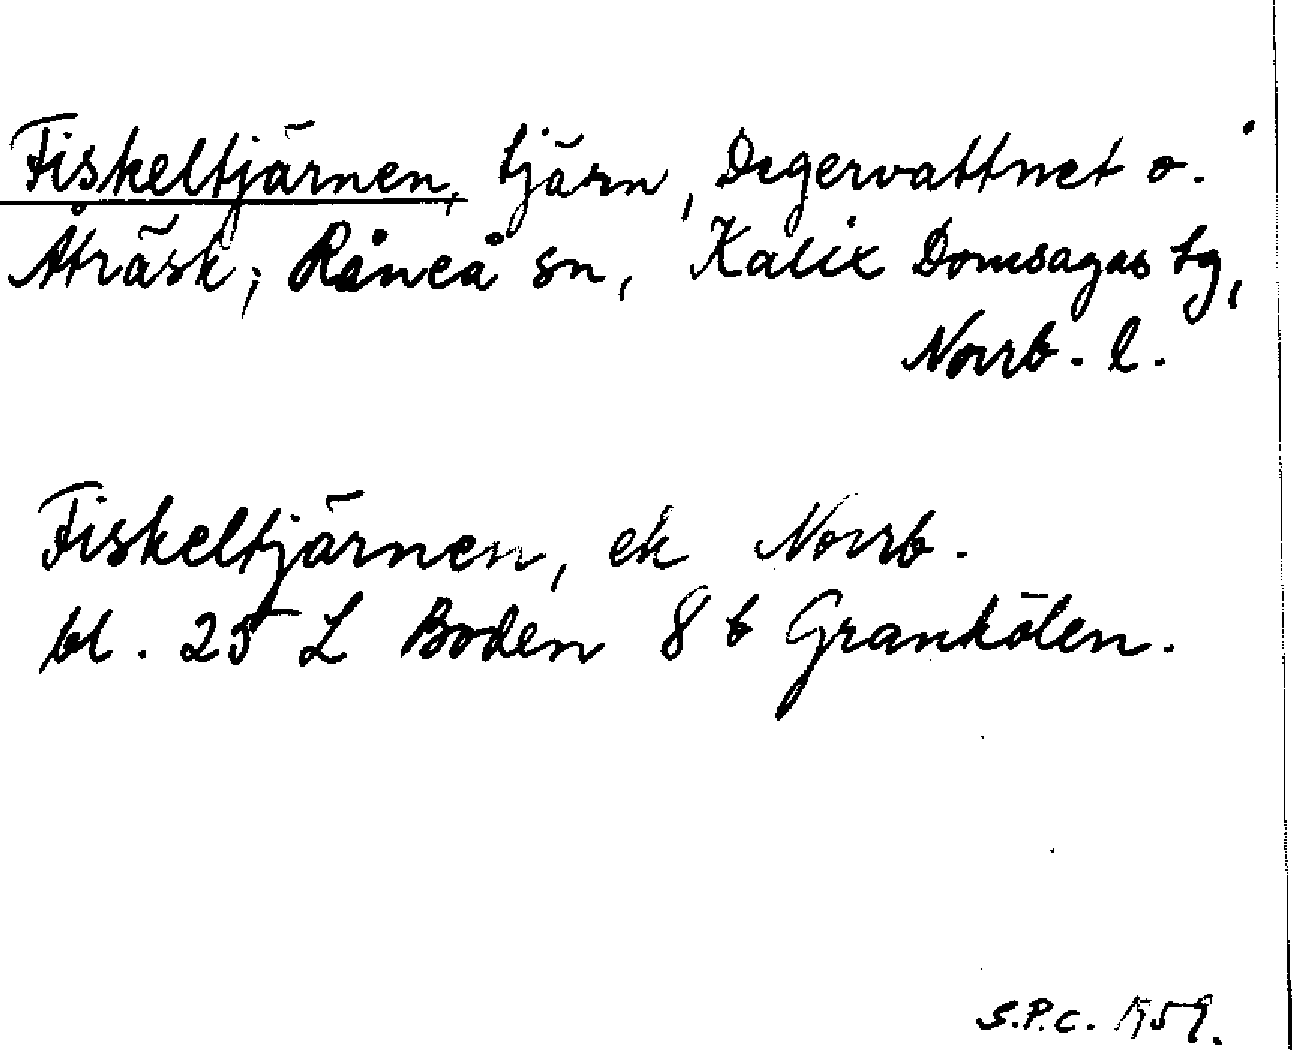 Fiskeltjärnen, tjärn, Degervattnet o.
Åträsk; Råneå sn, Kalix Domsagas tg,
Norrb. l.
Fiskeltjärnen, ek Norrb.
bl. 25 L Boden 8 b Grankölen.
S.P.C. 1959.